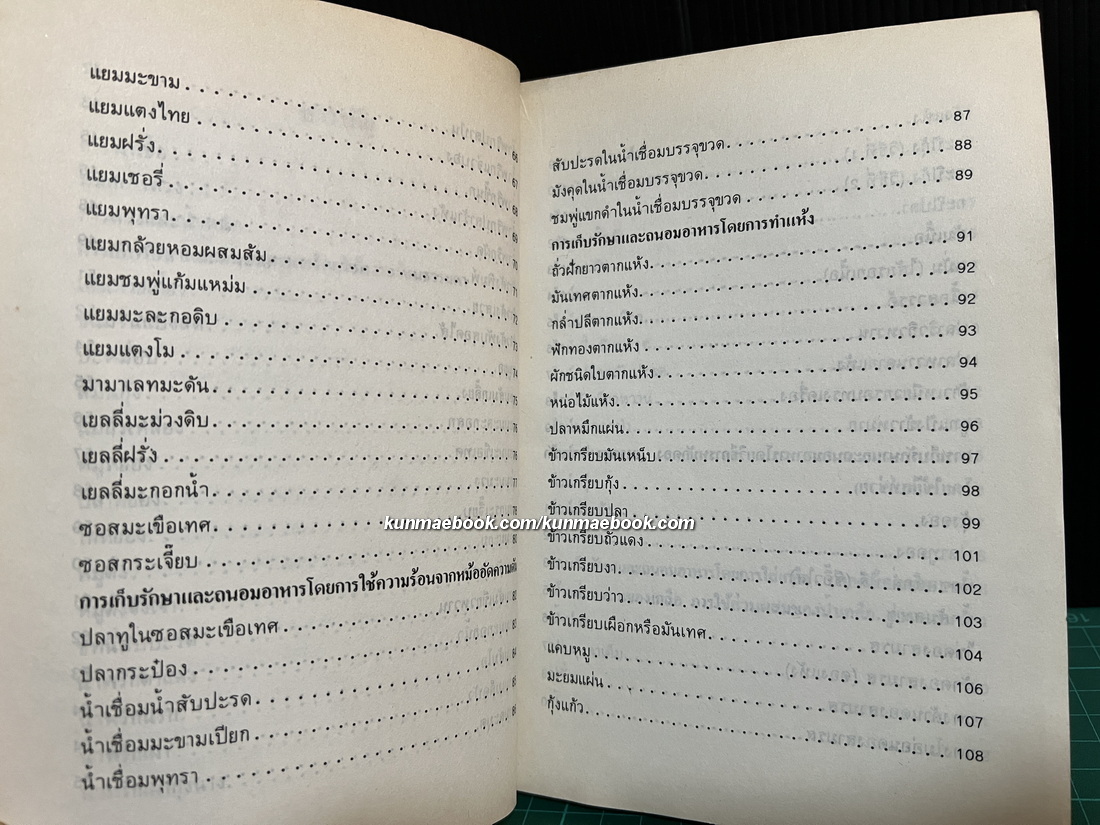 แยมมะขาม 66
แยมแตงไทย 67
แยมฝรั่ง 68
แยมเชอรี่ 69
แยมพุทรา 70
แยมกล้วยหอมผสมส้ม 71
แยมชมพู่แก้มแหม่ม 72
แยมมะละกอดิบ 73
แยมแตงโม 74
มามาเลทมะดัน 75
เยลลี่มะม่วงดิบ 76
เยลลี่ฝรั่ง 76
เยลลี่มะกอกน้ำ 77
ซอสมะเขือเทศ 78
ซอสกระเจี๊ยบ 80
การเก็บรักษาและถนอมอาหารโดยการใช้ความร้อนจากหม้ออัดความดัน
ปลาทูในซอสมะเขือเทศ
ปลากระป๋อง
น้ำเชื่อมน้ำสับปะรด 84
น้ำเชื่อมมะขามเปียก 85
น้ำเชื่อมพุทรา 86
สับปะรดในน้ำเชื่อมบรรจุขวด 87
มังคุดในน้ำเชื่อมบรรจุขวด 88
ชมพู่แขกดำในน้ำเชื่อมบรรจุขวด 89
การเก็บรักษาและถนอมอาหารโดยการทำแห้ง
ถั่วฝักยาวตากแห้ง 91
มันเทศตากแห้ง 92
กล่ำปลีตากแห้ง 92
ฟักทองตากแห้ง 93
ผักชนิดใบตากแห้ง 94
หน่อไม้แห้ง 95
ปลาหมึกแผ่น 96
ข้าวเกรียบมันเหน็บ 97
ข้าวเกรียบกุ้ง 98
ข้าวเกรียบปลา 99
ข้าวเกรียบถั่วแดง 101
ข้าวเกรียบงา 102
ข้าวเกรียบว่าว 103
ข้าวเกรียบเผือกหรือมันเทศ 104
แคบหมู 106
มะยมแผ่น 107
กุ้งแก้ว 108
kunmaebook.com/kunmaebook.com